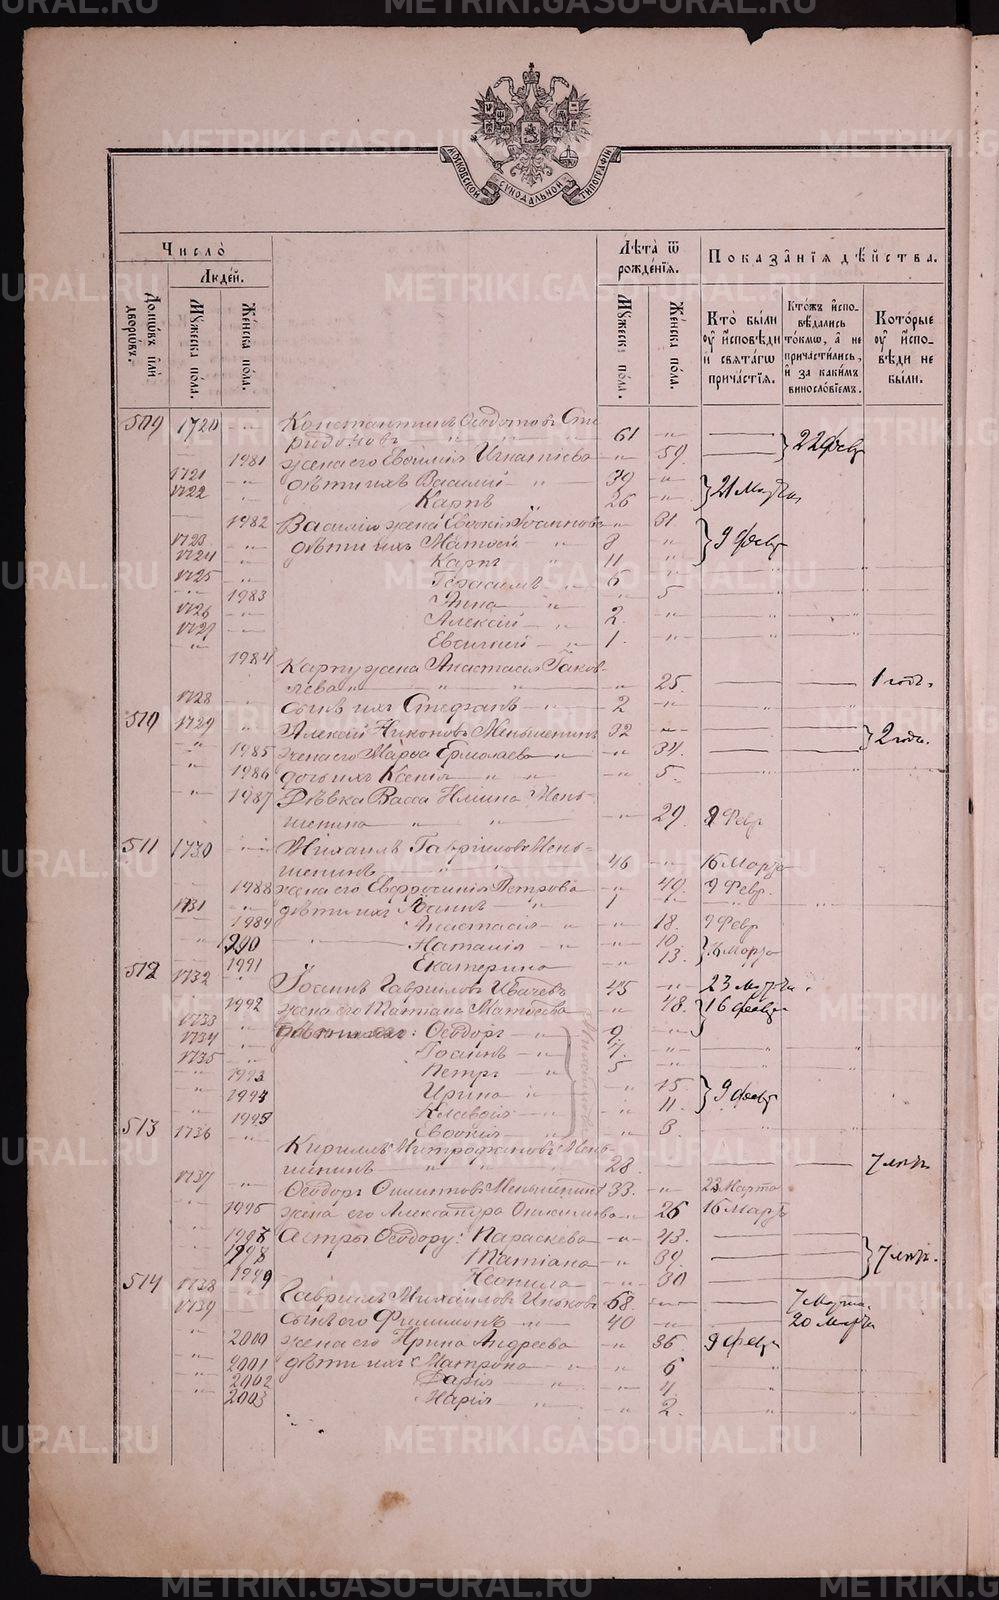 METRIKI.GASO-URAL.RU
МОСКОВСКОЙ СѴНОДАЛЬНОЙ ТИПОГРАФІИ
Число̀
Людей.
Домѡвъ и҆лѝ дворѡвъ.
Мꙋжеска по́ла.
Же́нска по́ла.
Лѣ́та ѿ рожде́нїѧ.
Мꙋжеска по́ла.
Же́нска по́ла.
Показа̑нїѧ дѣ́йства.
Кто̀ бы́ли оу҆ и҆сповѣди и свѧта́гѡ прича́стїѧ.
Кто́жъ и҆спо-вѣдались то́кмѡ, а҆ не причасти́лись, и҆ за каки́мъ винослові́емъ.
Кото́рые оу҆ и҆спо-вѣди не бы́ли.
509 1720 Константинъ Ѳеодотовъ Спи-
ридоновъ 61 22 февр
1981 жена его Евфимія Игнатіева 59.
1721 дѣти ихъ Василій 39
1722 Карпъ 26 21 Марта
1982 Василія жена Евдокія Іоаннова 31
1723 дѣти ихъ Матѳей 8 9 февр
1724 Карпъ 11
1725 Герасимъ 6
1983 Анна 5
1726 Алексій 2.
1727 Евгеній 1.
1984 Карпу жена Анастасія Іаков-
лева 25. 1 годъ.
1728 сынъ ихъ Стефанъ 2
510 1729 Алексій Никоновъ Меньшенинъ 32
1985 жена его Марѳа Ермолаева 34. 2 года.
1986 дочь ихъ Ксенія 5.
1987 Дѣвка Васса Нилина Мень-
шенина 29. 9 Февр
511 1730 Михаилъ Гавриловъ Мень-
шенинъ 46 16 Марта
1988 жена его Евфросинія Петрова 49. 9 Февр.
1731 дѣти ихъ Іоаннъ 1
1989 Анастасія 18. 9 Февр
1990 Наталія 10
1991 Екатерина 13. 16 Марта
512 1732 Іоаннъ Гавриловъ Ивачевъ 45 23 Марта.
1992 жена его Татіана Матѳеева 48. 16 февр
1733 Ѳеодоръ 9.
1734 Іоаннъ 7.
1735 Петръ 5
1993 Ирина 15
1994 Клавдія 11. 9 февр
1995 Евдокія 8.
513 1736 Кириллъ Митрофановъ Мень-
шенинъ 28. 7 лѣтъ
1737 Ѳеодоръ Меньшенинъ 33. 23 Марта
1996 жена его Александра 26 16 Марта
1997 Сестры Ѳеодору: Параскева 43.
1998 Татіана 39. 7 лѣтъ.
1999 Неонила 30
514 1738 Гавриилъ Михайловъ 68. 7 Марта.
1739 сынъ его Филимонъ 40 20 Марта
2000 жена его Ирина Андреева 36. 9 февр
2001 дѣти ихъ: Матрона 6
2002 Дарія 4.
2003 Марія 2.